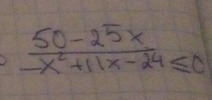 50-25x
-x²+11x-24 ≤0